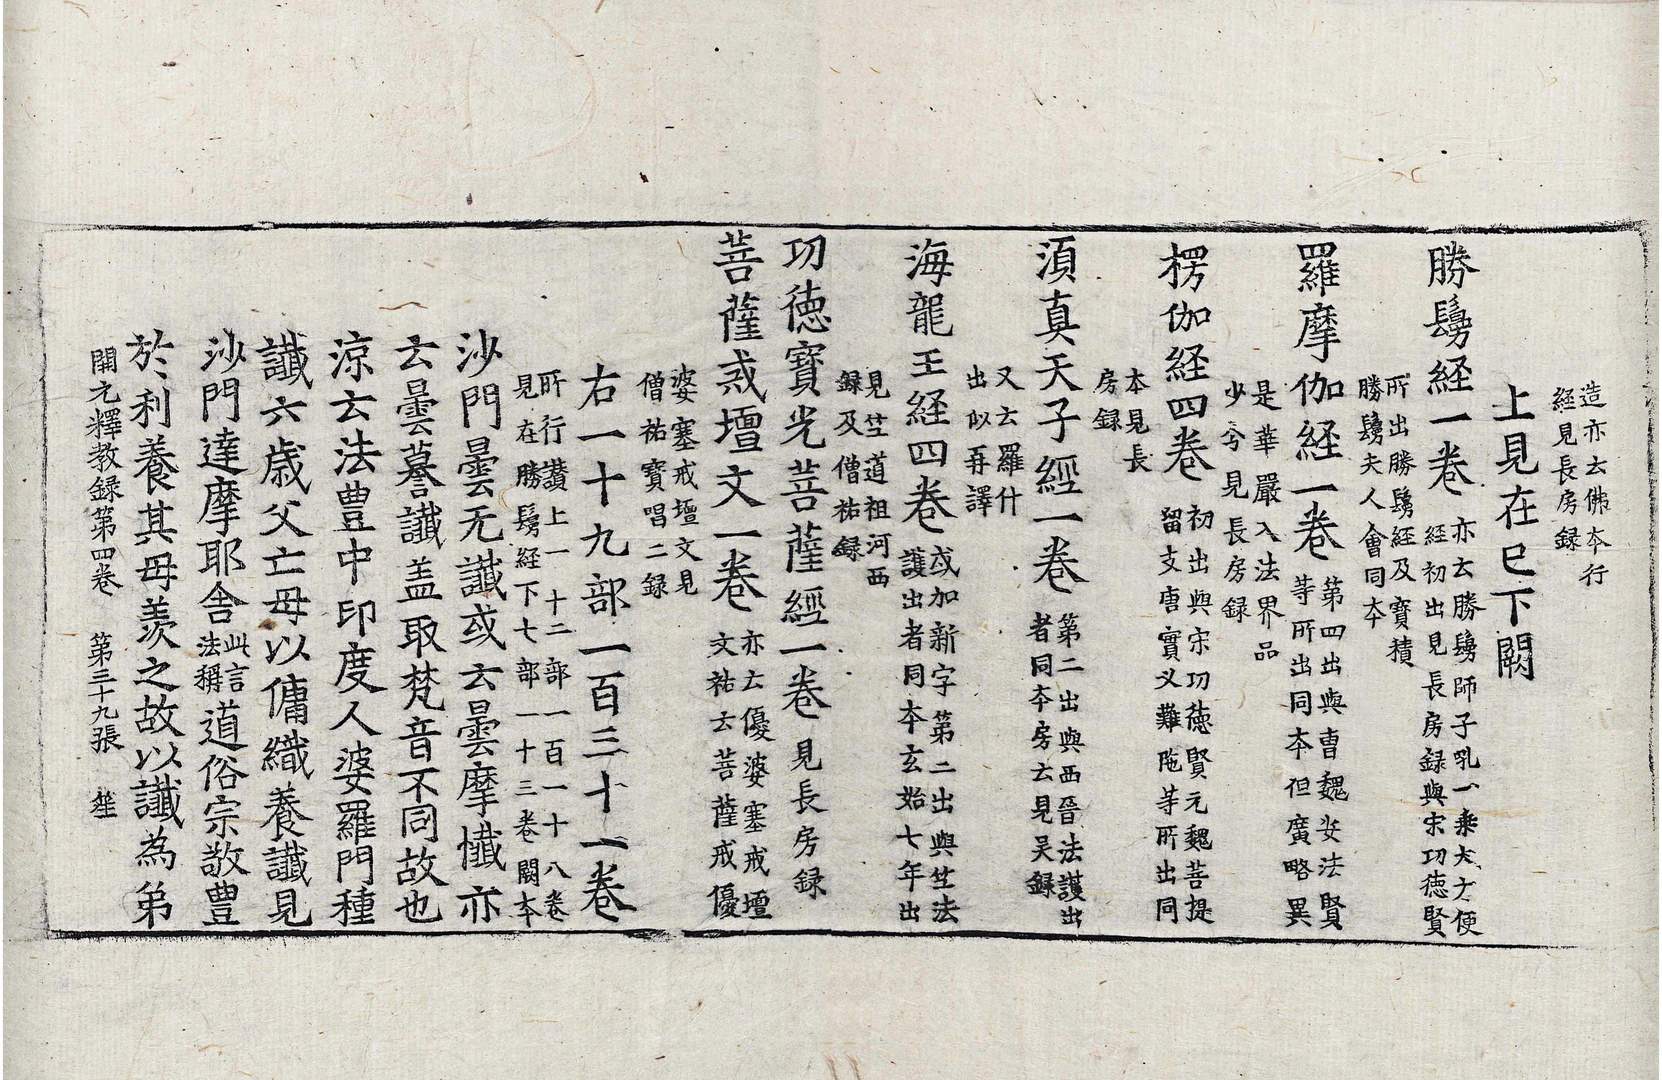 造亦云佛本行
經見長房錄
上見在已下闕
勝鬘経一卷
亦云勝鬘師子吼一乘大方便
経初出見長房錄與宋功德賢
所出勝鬘経及寶積
勝鬘夫人會同本
羅摩伽経一卷
第四出與曹魏安法賢
等所出同本但廣略異
是華嚴入法界品
少分見長房錄
楞伽経四卷
初出與宋功德賢元魏菩提
留支唐實叉難陁等所出同
本見長
房錄
湏真天子經一卷
第二出與西晉法護出
者同本房云見吴錄
又云羅什
出似再譯
海龍王経四卷
或加新字第二出與竺法
護出者同本玄始七年出
見竺道祖河西
錄及僧祐錄
功德寶光菩薩經一卷
見長房錄
菩薩戒壇文一卷
亦云優婆塞戒壇
文祐云菩薩戒優
婆塞戒壇文見
僧祐寶唱二錄
右一十九部一百三十一卷
所行讚上一十二部一百一十八卷
見在勝鬘経下七部一十三卷闕本
沙門曇无讖或云曇摩懺亦
云曇謩讖盖取梵音不同故也
凉云法豊中印度人婆羅門種
讖六歲父亡母以傭織養讖見
沙門達摩耶舍
此言
法稱
道俗宗敬豊
於利養其母羨之故以讖為弟
開元釋教錄第四卷 第三十九張